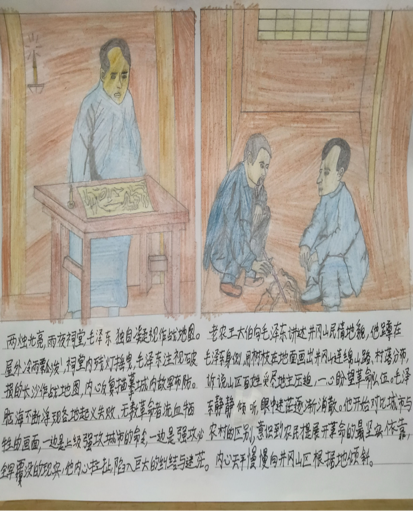 两烛光亮,雨夜祠堂,毛泽东独自凝视作战地图。
屋外冷雨,祠堂内残灯摇曳,毛泽东注视破
损的长沙作战地图,内心
脑海不断浮现各地起义失败,无数革命者流血牺
牲的画面,一边是上级强攻城市的命令,一边是强攻必
全军覆没的现实,他内心陷入巨大的纠结与迷茫。
老农王大伯向毛泽东讲述井冈山民情地貌,他蹲在
毛泽东身侧,用树枝在地面画出井冈山连绵山路,村落分布,
诉说山区百姓受尽地主压迫,一心盼望革命队伍。毛泽
东静静倾听,眼中迷茫逐渐消散。他开始对比城市与
农村的区别,意识到农民是开展革命的最坚实依靠,
内心天平慢慢向井冈山区根据地倾斜。